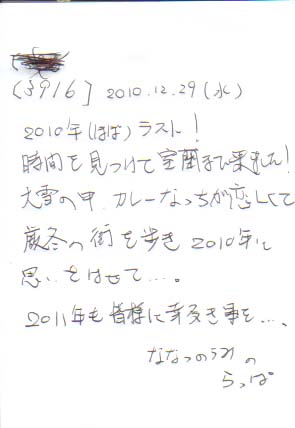 (3916] 2010.12.29(水)
2010年(ほぼ)ラスト!
時間を見つけて室蘭まで来ました!
大雪の中 カレーなっちが恋しくて
厳冬の街を歩き 2010年に
思いをはせて…。
2011年も皆様に幸多き事を…、
ななつのうみの
らっぱ